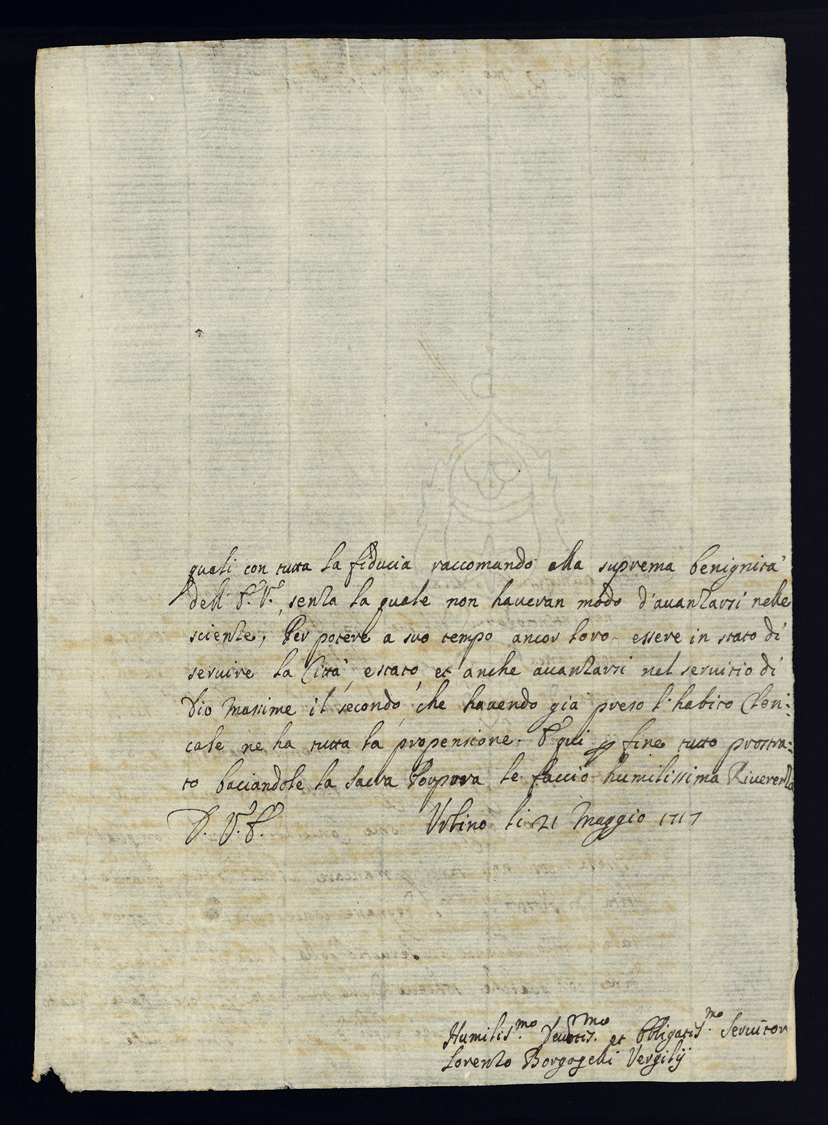 quali con tutta la fiducia raccomando alla suprema benignità
dell' E. V., senza la quale non haveran modo d'avanzarsi nelle
scienze, Per potere a suo tempo ancor loro essere in stato di
servire la Città, e stato, et anche avanzarsi nel servitio di
Dio Massime il secondo, che havendo già preso l'habito Cleri:
cale ne ha tutta la propensione. E qui p fine tutto prostra:
to baciandole la Sacra Porpora le faccio humilissima Riverenza
D. V. E. Urbino li 21 Maggio 1717
Humilis.mo Devotis.mo et Obligatis.mo Servitor
Lorenzo Borgogelli Vergilij